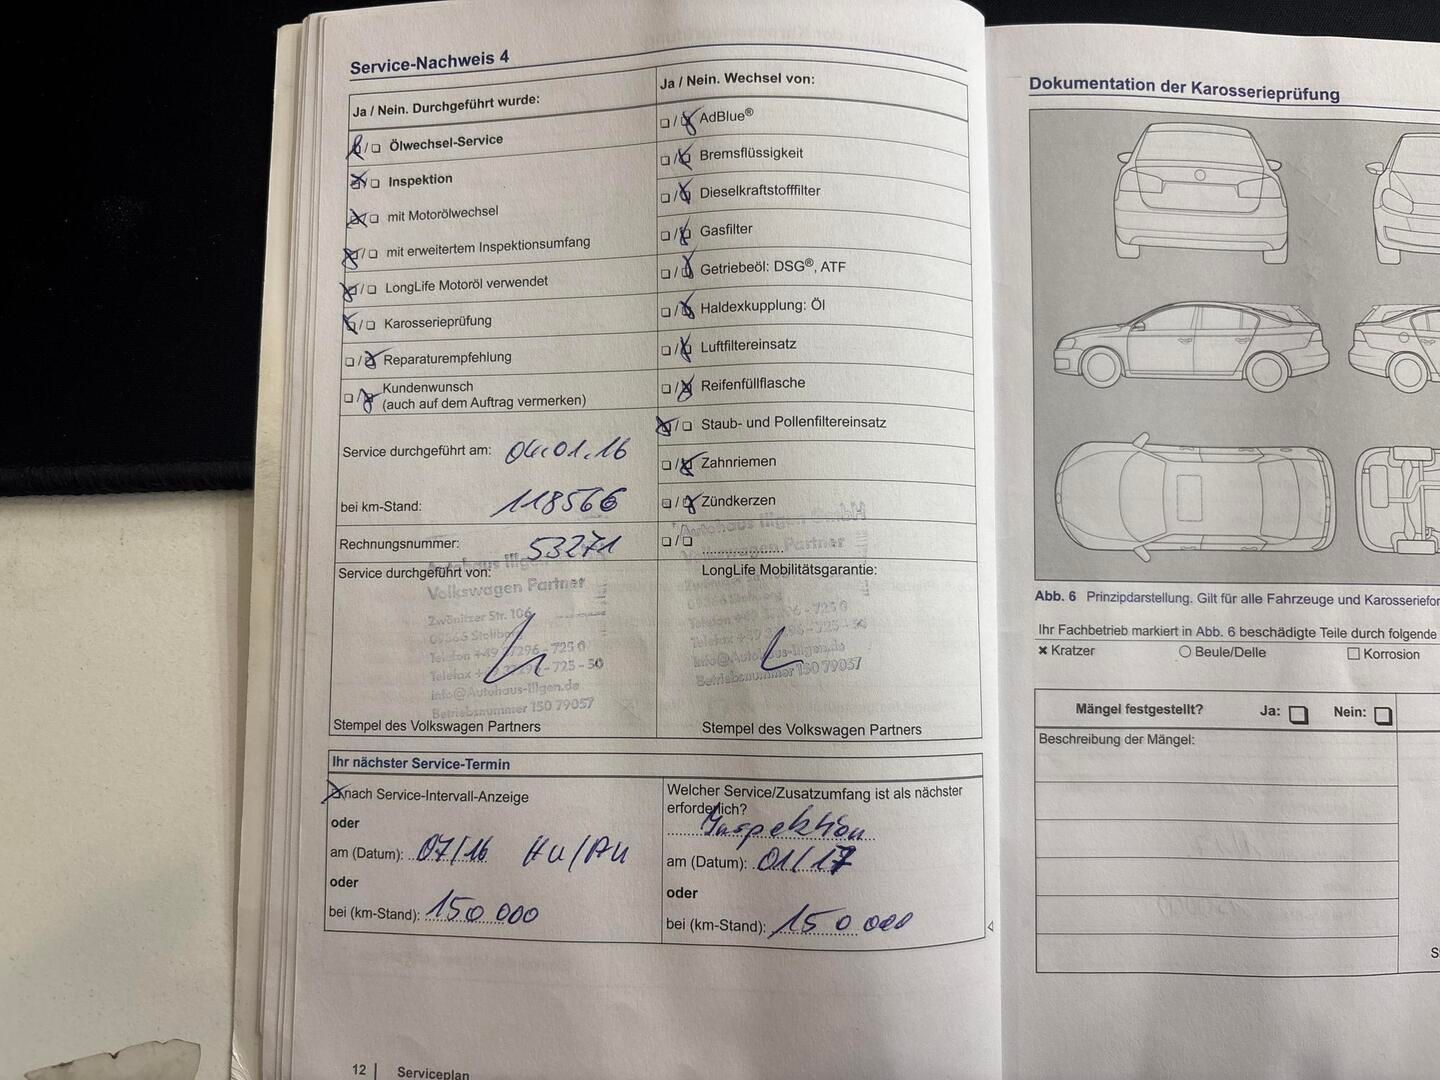 Service-Nachweis 4
Ja / Nein. Durchgeführt wurde:
☒/☐ Ölwechsel-Service
☒/☐ Inspektion
☒/☐ mit Motorölwechsel
☒/☐ mit erweitertem Inspektionsumfang
☒/☐ LongLife Motoröl verwendet
☒/☐ Karosserieprüfung
☐/☒ Reparaturempfehlung
☐/☒ Kundenwunsch
(auch auf dem Auftrag vermerken)
Service durchgeführt am: 04.01.16
bei km-Stand: 118566
Rechnungsnummer: 53271
Service durchgeführt von:
Autohaus Illgen
Volkswagen Partner
Zwönitzer Str. 106
09366 Stollberg
Telefon +49 37296 - 725 0
Telefax +49 37296 - 725 - 50
info@Autohaus-Illgen.de
Betriebsnummer 150 79057
Stempel des Volkswagen Partners
Ja / Nein. Wechsel von:
☐/☒ AdBlue®
☐/☒ Bremsflüssigkeit
☐/☒ Dieselkraftstofffilter
☐/☒ Gasfilter
☐/☒ Getriebeöl: DSG®, ATF
☐/☒ Haldexkupplung: Öl
☐/☒ Luftfiltereinsatz
☐/☒ Reifenfüllflasche
☒/☐ Staub- und Pollenfiltereinsatz
☐/☒ Zahnriemen
☐/☒ Zündkerzen
☐/☐
Autohaus Illgen GmbH
Volkswagen Partner
LongLife Mobilitätsgarantie:
09366 Stollberg
Telefon +49 37296 - 725 0
Telefax +49 37296 - 725 - 50
info@Autohaus-Illgen.de
Betriebsnummer 150 79057
Stempel des Volkswagen Partners
Ihr nächster Service-Termin
☒ nach Service-Intervall-Anzeige
oder
am (Datum): 07/16 HU/AU
oder
bei (km-Stand): 150 000
Welcher Service/Zusatzumfang ist als nächster
erforderlich?
Inspektion
am (Datum): 01/17
oder
bei (km-Stand): 150 000
12 | Serviceplan
Dokumentation der Karosserieprüfung
Abb. 6 Prinzipdarstellung. Gilt für alle Fahrzeuge und Karosseriefor
Ihr Fachbetrieb markiert in Abb. 6 beschädigte Teile durch folgende
× Kratzer ○ Beule/Delle ☐ Korrosion
Mängel festgestellt? Ja: ☐ Nein: ☐
Beschreibung der Mängel: